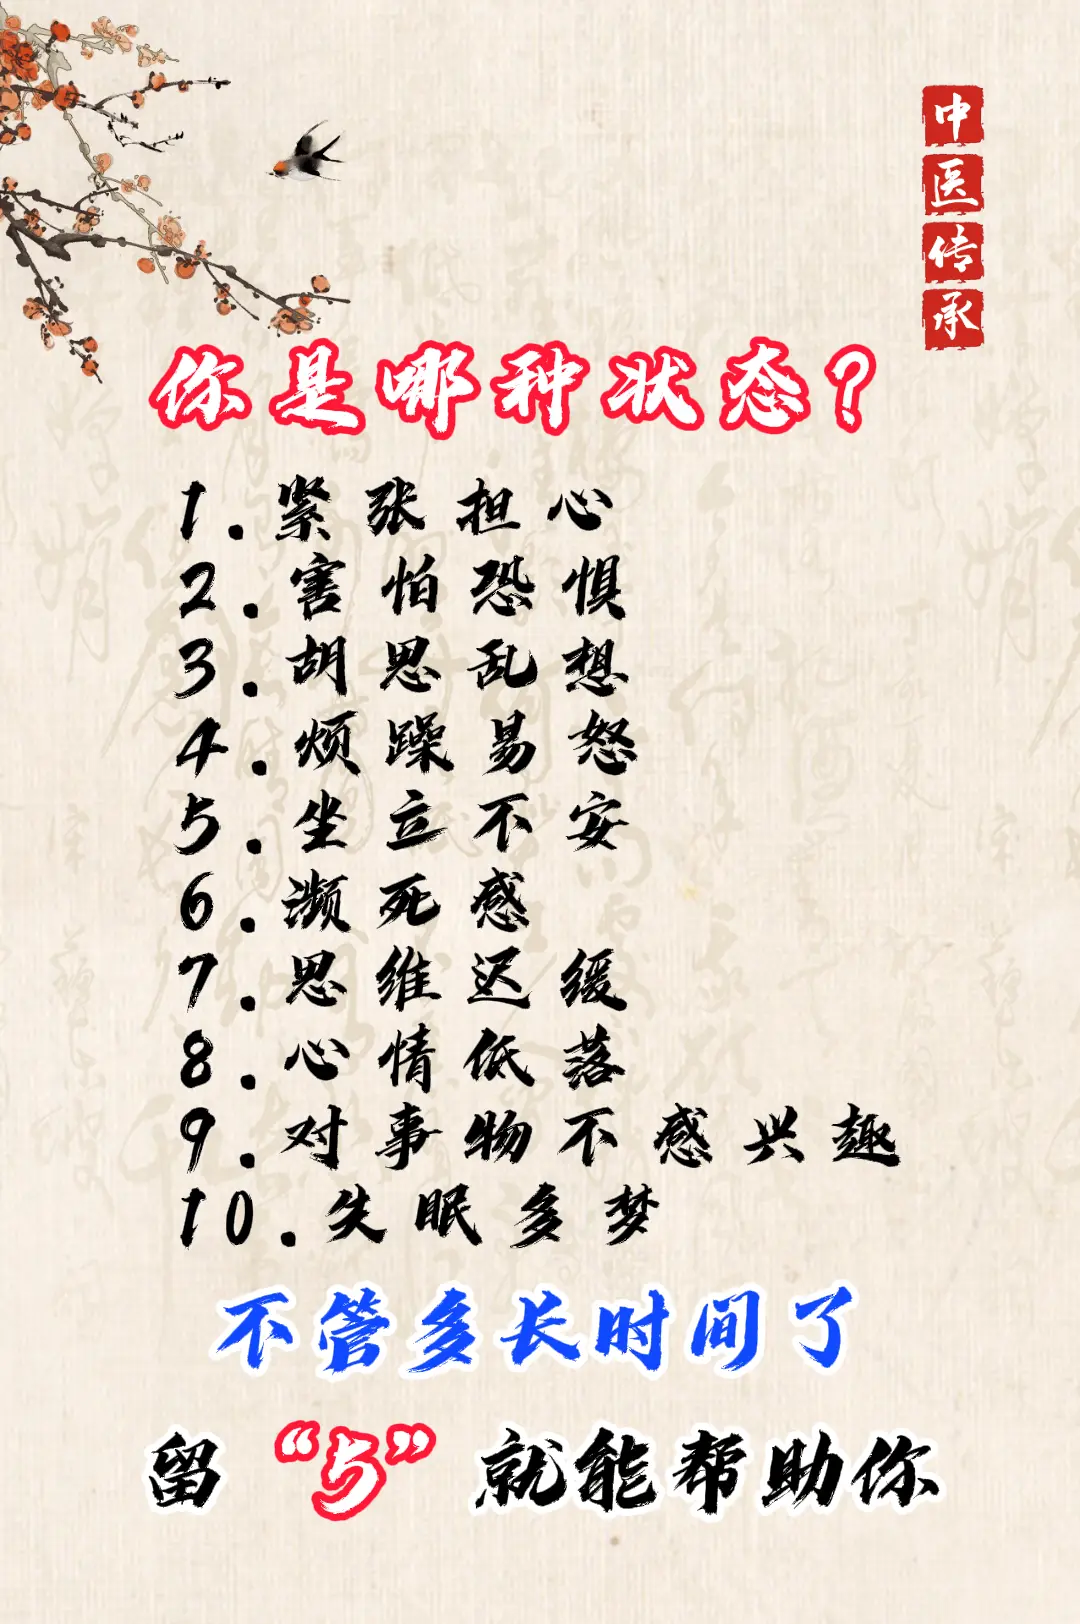 中医传承
你是哪种状态?
1.紧张担心
2.害怕恐惧
3.胡思乱想
4.烦躁易怒
5.坐立不安
6.濒死感
7.思维迟缓
8.心情低落
9.对事物不感兴趣
10.失眠多梦
不管多长时间了
留“5”就能帮助你